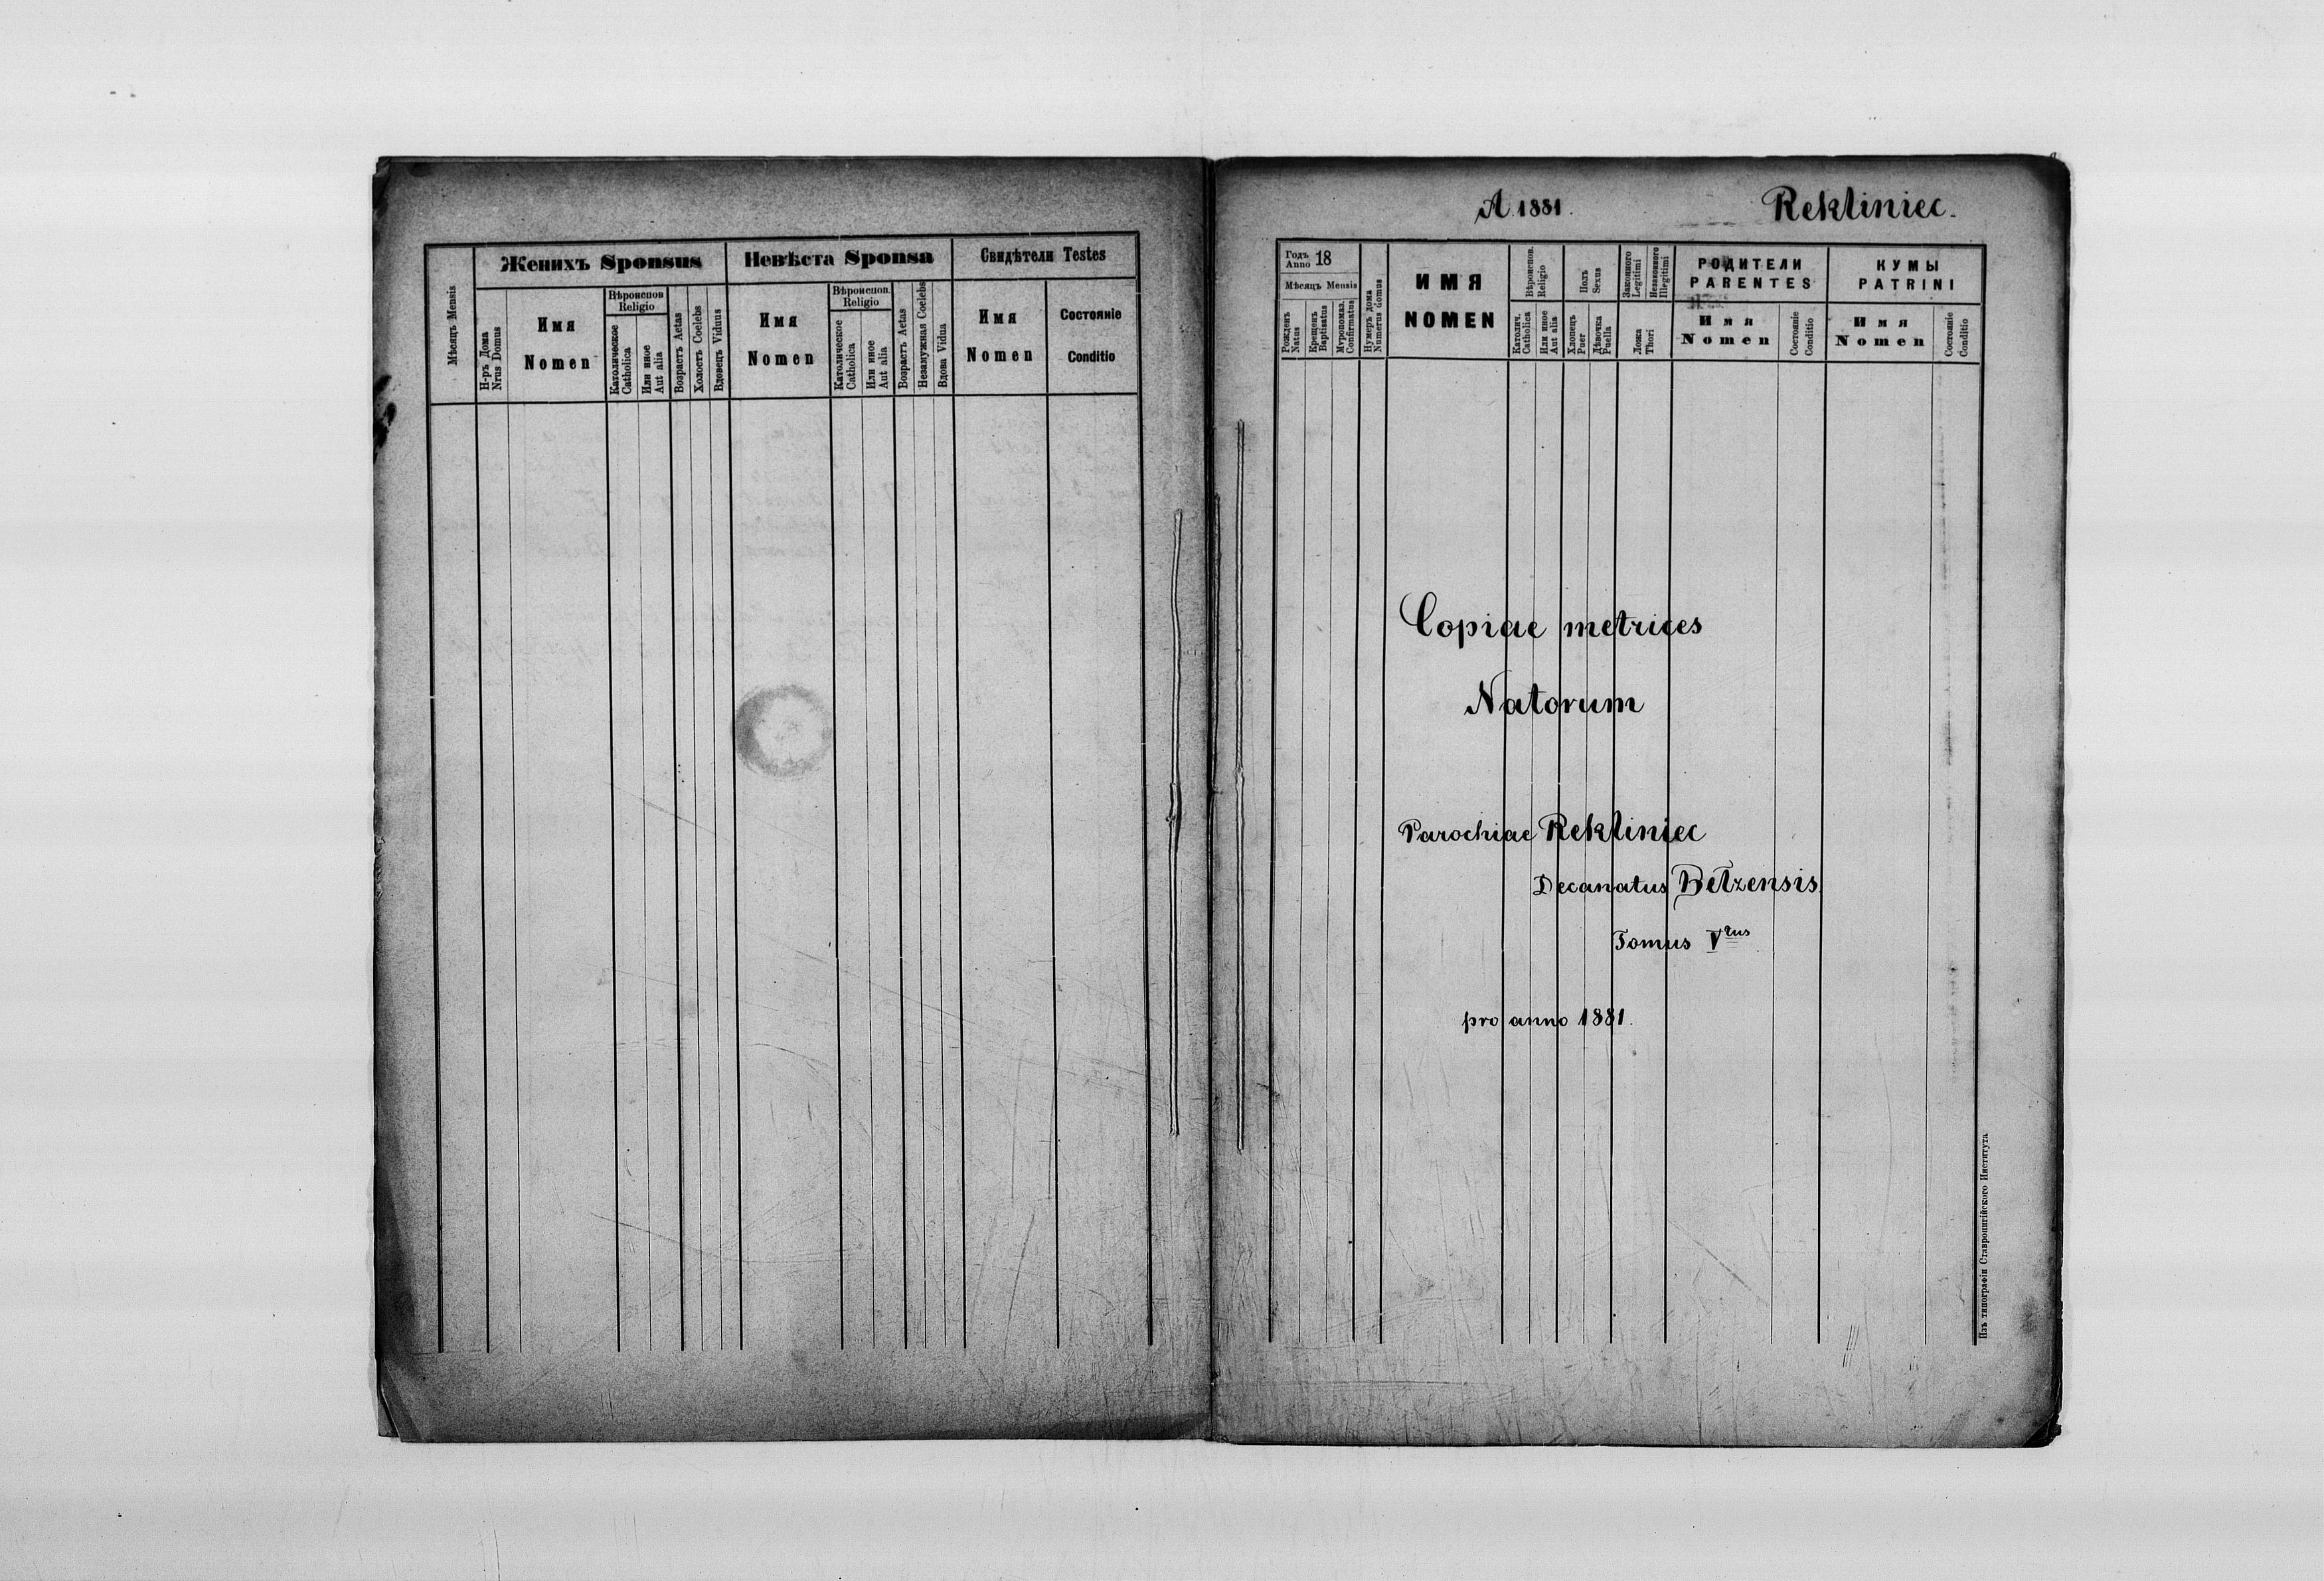 Мѣсяцъ Mensis
Женихъ Sponsus
Невѣста Sponsa
Свидѣтели Testes
Н-ръ Дома
Nrus Domus
Имя
Nomen
Вѣроиспов
Religio
Католическое
Catholica
Или иное
Aut alia
Возрастъ Aetas
Холостъ Coelebs
Вдовецъ Viduus
Имя
Nomen
Вѣроиспов.
Religio
Католическое
Catholica
Или иное
Aut alia
Возрастъ Aetas
Незамужная Coelebs
Вдова Vidua
Имя
Nomen
Состояніе
Conditio
A 1881.
Rekliniec.
Годъ
Anno 18
Мѣсяцъ Mensis
Рожденъ
Natus
Крещенъ
Baptisatus
Мѵропомаз.
Confirmatus
Нумеръ дома
Numerus domus
ИМЯ
NOMEN
Вѣроиспов.
Religio
Католич.
Catholica
Или иное
Aut alia
Полъ
Sexus
Хлопецъ
Puer
Дѣвочка
Puella
Законного
Legitimi
Незаконного
Illegitimi
Ложа
Thori
РОДИТЕЛИ
PARENTES
Имя
Nomen
Состояніе
Conditio
КУМЫ
PATRINI
Имя
Nomen
Состояніе
Conditio
Copiae metrices
Natorum
Parochiae Rekliniec
Decanatus Bełzensis
Tomus V tus
pro anno 1881.
Изъ типографіи Ставропигійского Института